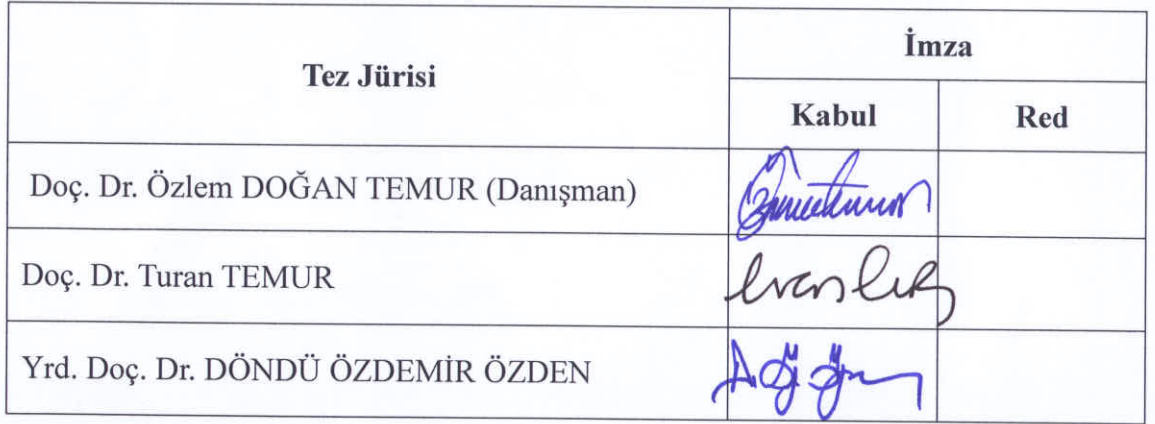 Tez Jürisi
İmza
Kabul
Red
Doç. Dr. Özlem DOĞAN TEMUR (Danışman)
Doç. Dr. Turan TEMUR
Yrd. Doç. Dr. DÖNDÜ ÖZDEMİR ÖZDEN